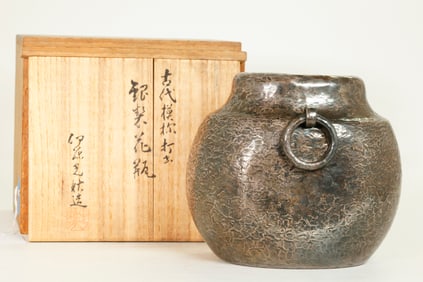 古代模様打出
銀製花瓶
伊原光祐造